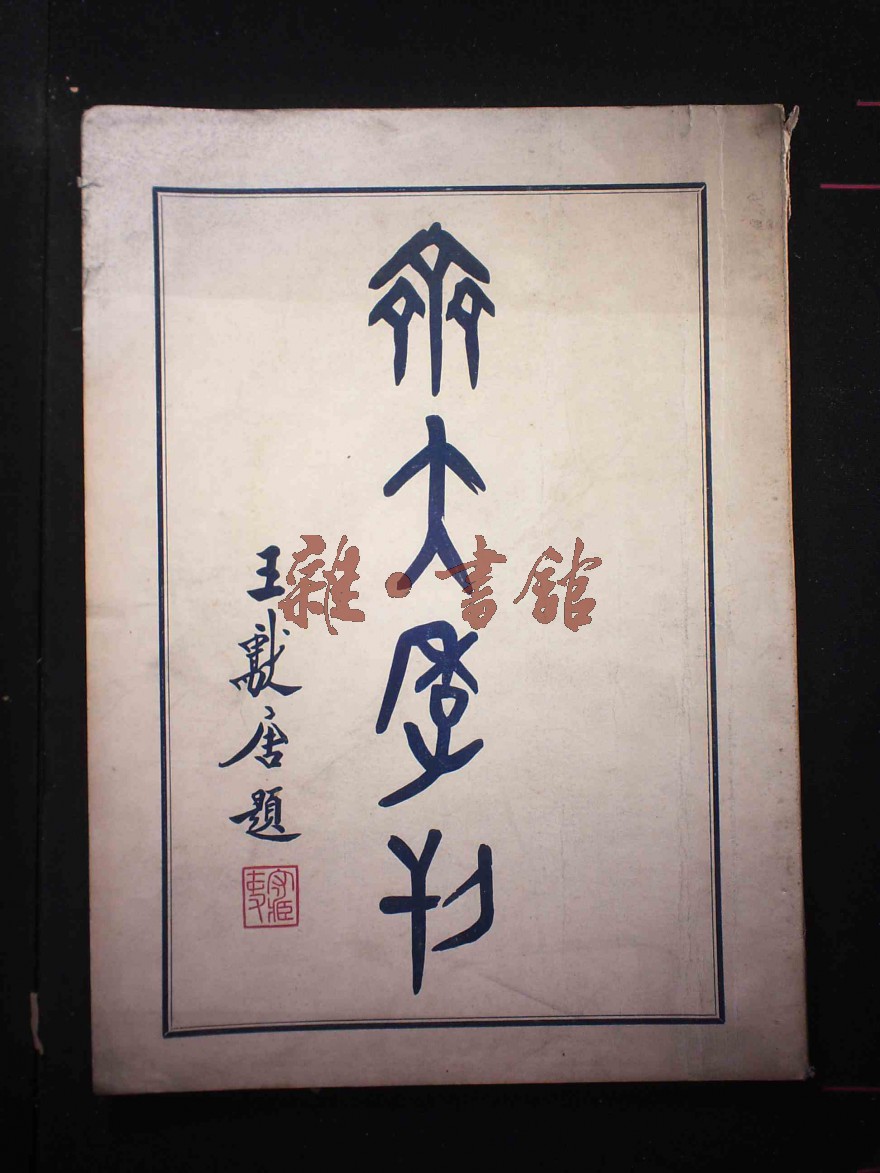 齊大季刊
王獻唐題
雜·書館